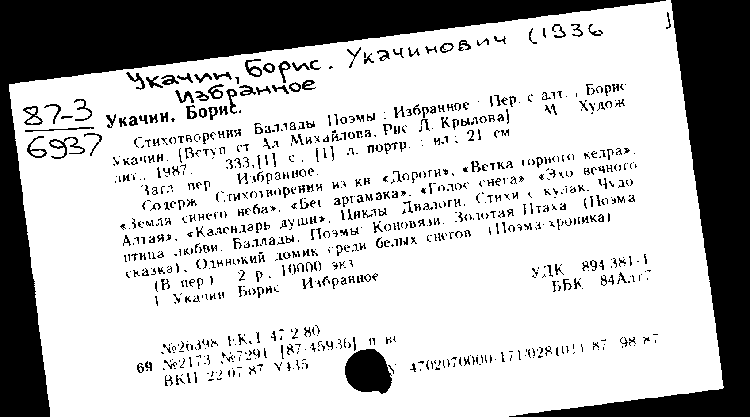 Укачин, Борис. Укачинович (1936
]
Избранное
87-3
6937
Укачин, Борис.
Стихотворения Баллады Поэмы : Избранное Пер. с алт. , Борис
Укачин. [Вступ ст Ал Михайлова, Рис Л. Крылова] М Худож
лит., 1987. 333,[1] с., [1] л. портр. : ил ; 21 см
Загл пер Избранное.
Содерж Стихотворения из кн «Дороги», «Ветка горного кедра»,
«Земля синего неба», «Бег аргамака», «Голос снега» «Эхо вечного
Алтая», «Календарь души», Циклы Диалоги, Стихи с кулак, Чудо
птица любви. Баллады. Поэмы Коновязи, Золотая Птаха (Поэма
сказка), Одинокий домик среди белых снегов (Поэма-хроника)
(В пер ) 2 р , 10000 экз
1 Укачин Борис Избранное
УДК 894.381-1
ББК 84Алт7
№26398 ЕКЛ 47 2 80
69 №2173 №7291 [87-45936] п
ВКП 22 07 87 У435
У 4702070000-171/028(01)-87 98-87